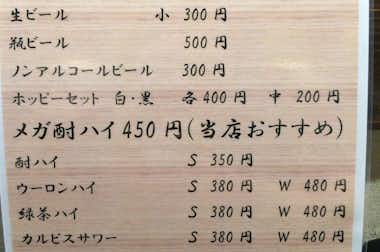 生ビール 小 300円
瓶ビール 500円
ノンアルコールビール 300円
ホッピーセット 白・黒 各400円 中 200円
メガ酎ハイ450円(当店おすすめ)
酎ハイ S 350円
ウーロンハイ S 380円 W 480円
緑茶ハイ S 380円 W 480円
カルピスサワー S 380円 W 480円